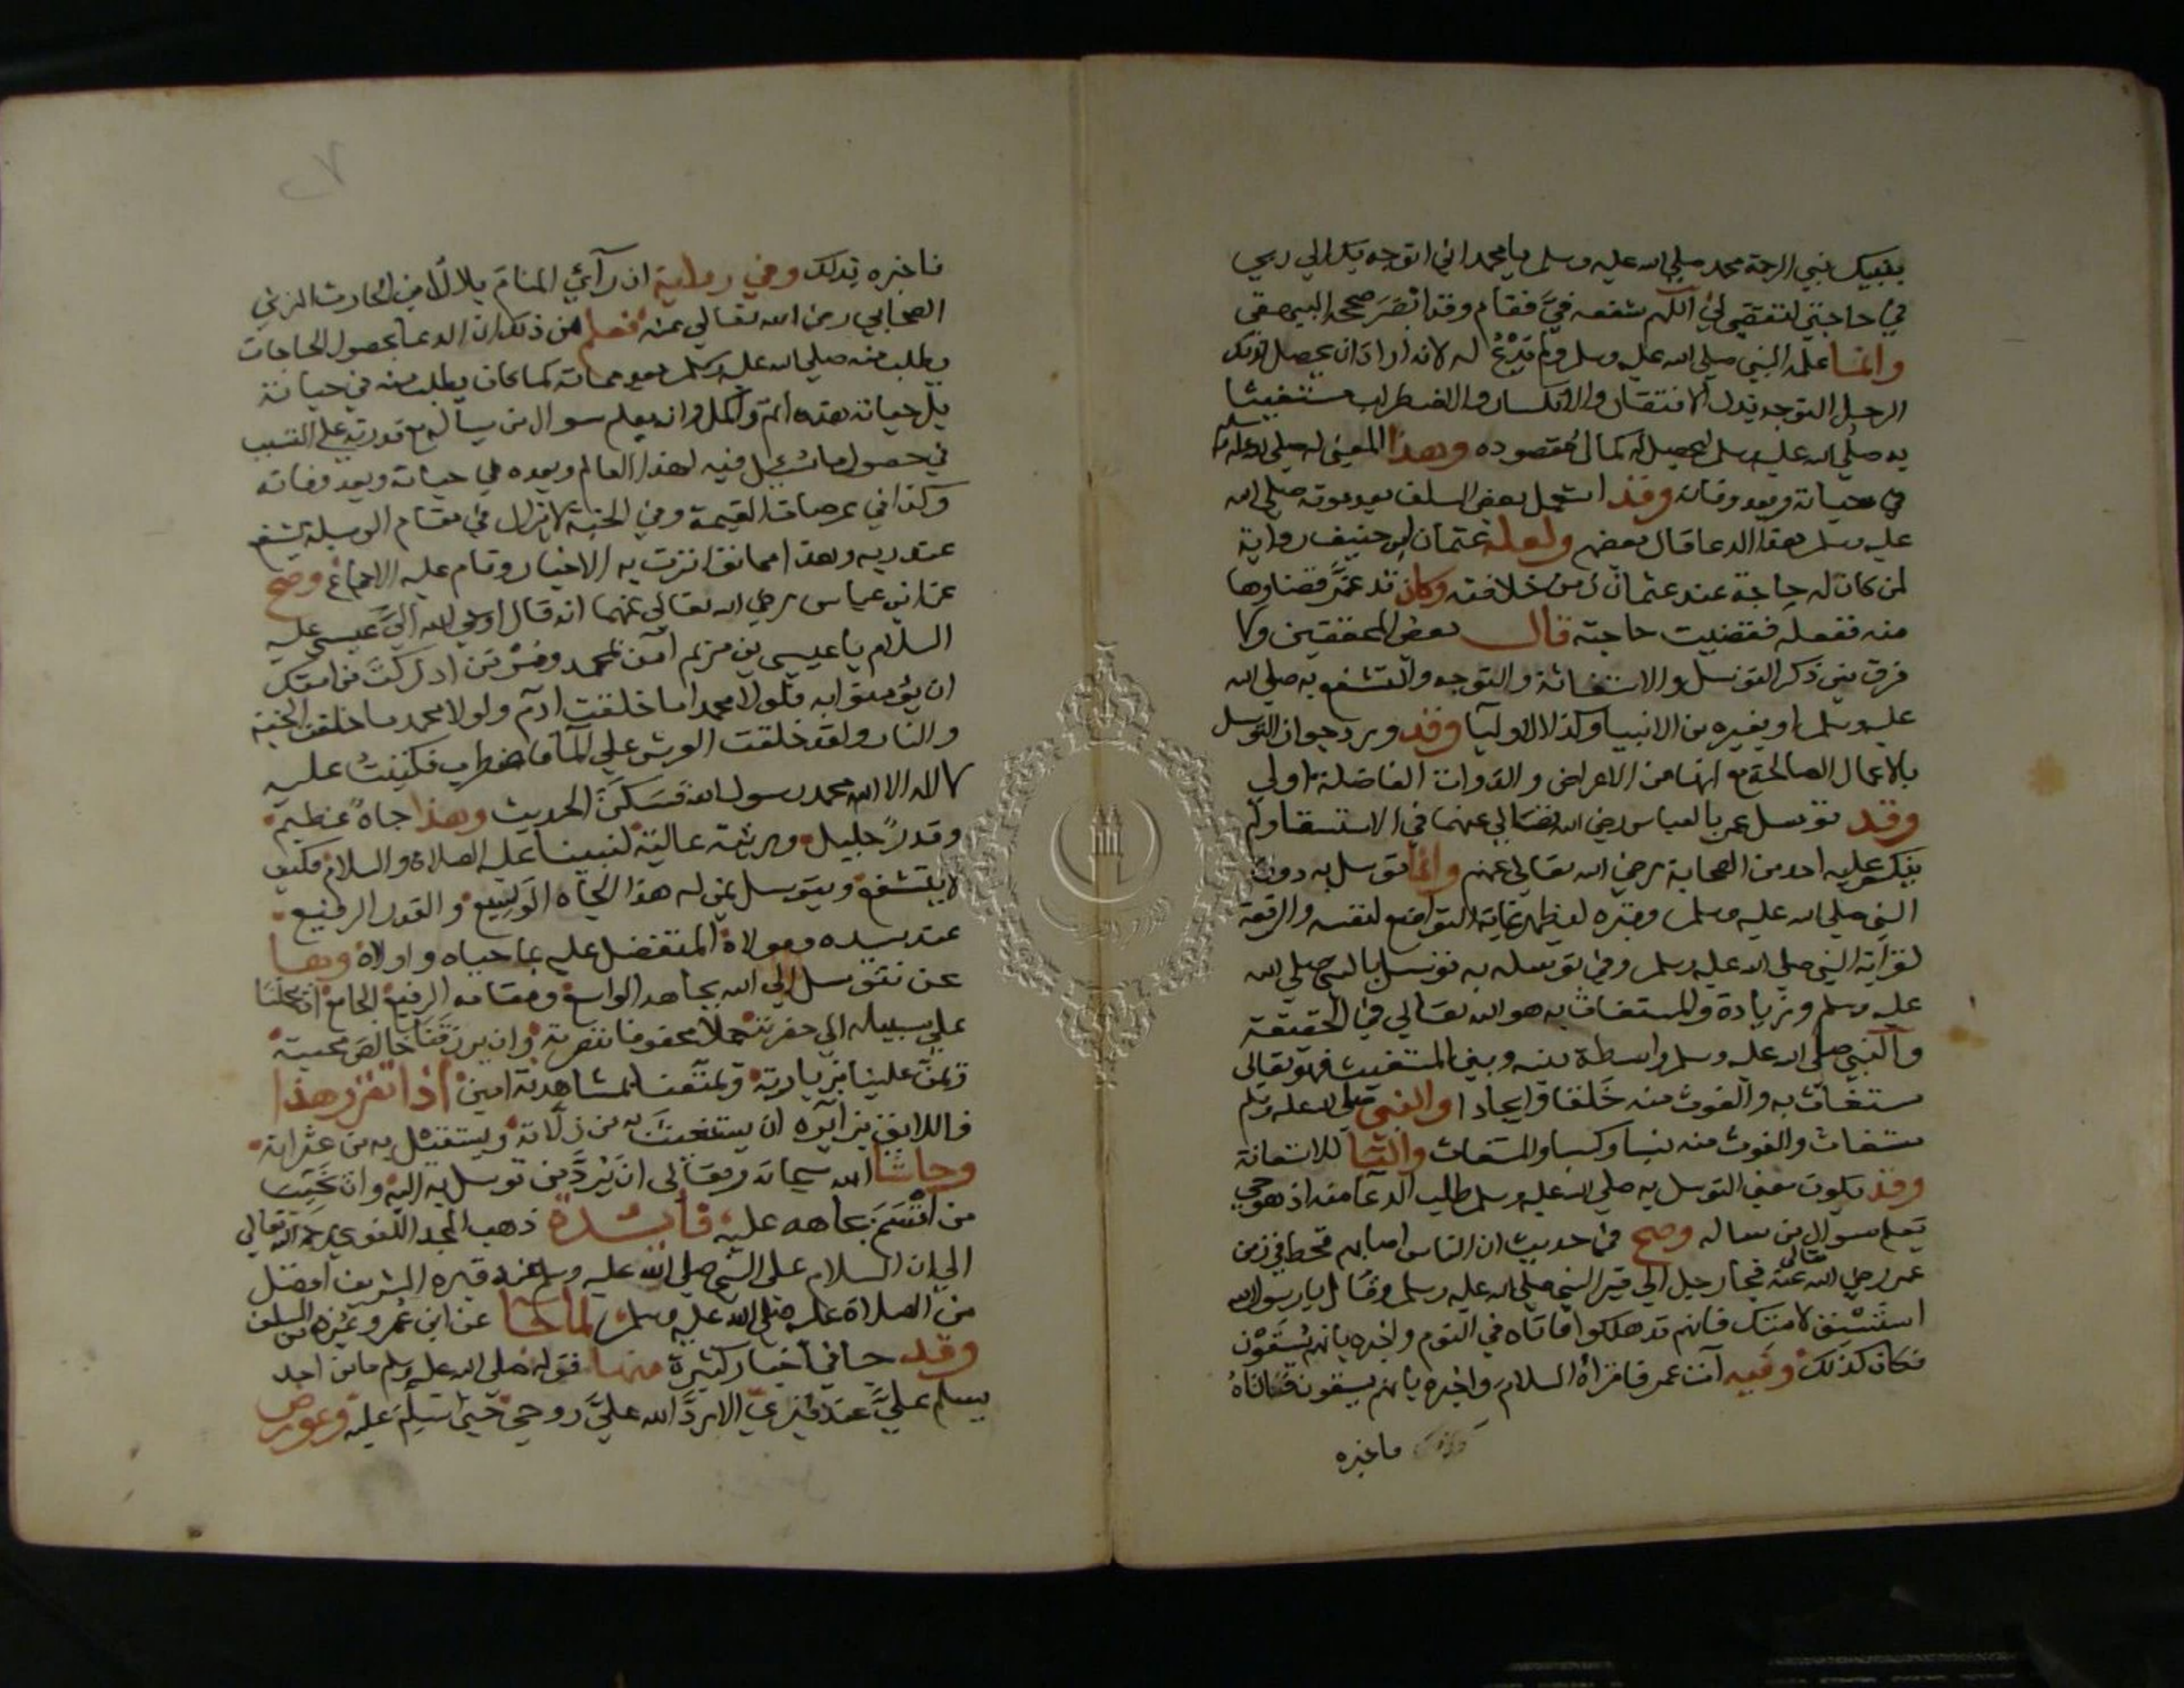 بنبيك نبي الرحمة محمد صلى الله عليه وسلم يا محمد اني اتوجه بك الي ربي
في حاجتي لتقضي لي اللهم شفعه فيَّ فقام وقد ابصَرَ صححه البيهقى
وانما علمه النبي صلى الله عليه وسلم ولم يَدْعُ له لانه اراد ان يحصل لذلك
الرجل التوجه بذل الافتقار والانكسار والاضطرار مستغيثا
به صلى الله عليه وسلم ليحصل له كمال مقصوده وهذا المعني له صلى الله عليه وسلم
في حياته وبعد وفاته وقد استعمل بعض السلف بعد موته صلى الله
عليه وسلم هذا الدعا قال بعضهم ولعله عثمان ابن حنيف رواية
لمن كان له حاجة عند عثمان زمن خلافته وكان قد عسر قضاوها
منه ففعله فقضيت حاجته قال بعض المحققين ولا
فرق بين ذكر التوسل والاستغاثة والتوجه والتشفع به صلى الله
عليه وسلم او بغيره من الانبيا وكذا الاوليآ وقد ورد جواز التوسل
بالاعمال الصالحة مع انها من الاعراض والذوات الفاضلة اولي
وقد توسل عمر بالعباس رضي الله تعالي عنهما في الاستسقا ولم
ينكر عليه احد من الصحابة رضي الله تعالي عنهم وانما توسل به دون
النبي صلى الله عليه وسلم وقبره ليظهر غاية التواضع لنفسه والرفعة
لقرابة النبي صلى الله عليه وسلم وفي توسله به توسل بالنبي صلى الله
عليه وسلم وزيادة والمستغاث به هو الله تعالي في الحقيقة
والنبي صلى الله عليه وسلم واسطة بينه وبين المستغيث فهو تعالى
مستغاث به والغوث منه خَلقا وايجادا والنبي صلى الله عليه وسلم
مستغاث والغوث منه تسببا وكسبا والمستغاث للاستعانة
وقد يكون معني التوسل به صلى الله عليه وسلم طلب الدعآ منه اذ هو حي
يعلم سوال من سأله وصح في حديث ان الناس اصابهم قحط في زمن
عمر رضي الله تعالى عنه فجا رجل الي قبر النبي صلى الله عليه وسلم وقال يا رسول الله
اسْتَسْقِ لامتك فانهم قد هلكوا فاتاه في النوم واخبره بانهم يُسْقَوْن
فكان كذلك وفيه آئت عمر فاقرأه السلام واخبره بانهم يسقون فاتاهُ
فاخبره
فاخبره بذلك وفي رواية ان رآئي المنام بلال بن الحارث المزني
الصحابي رضي الله تعالي عنه فعلم من ذلك ان الدعا بحصول الحاجات
يطلب منه صلى الله عليه وسلم بعد مماته كما كان يطلب منه في حياته
بل حياته هذه اتم واكمل وانه يعلم سوال من يسأله مع قدرته علي التسبب
في حصول ما سُئِل فيه لهذا العالم وبعده في حياته وبعد وفاته
وكذا في عرصات القيمة وفي الجنة لا يزال في مقام الوسيلة يشفع
عند ربه وهذا مما تواترت به الاخبار وقام عليه الاجماع وصح
عن ابن عباس رضي الله تعالي عنهما انه قال اوحي الله الي عيسى عليه
السلام يا عيسي بن مريم آمن بمحمد ومُرْ من ادركت من امتك
ان يؤمنوا به فلولا محمد ما خلقت آدم ولولا محمد ما خلقت الجنة
والنار ولقد خلقت العرش علي المآ فاضطرب فكتبتُ عليه
لا اله الا الله محمد رسول الله فسَكَنَ الحديث وهذا جاهٌ عظيم
وقدرٌ جليل ومرتبة عالية لنبينا عليه الصلاة والسلام فكيف
لا يتشفع ويتوسل بمن له هذا الجاه الوَسيع والقدر الرفيع
عند سيده ومولاه المتفضل عليه بما حباه واولاه وها
نحن نتوسل الي الله بجاهه الواسع ومقامه الرفيع الجامع ان يحملنا
علي سبيله الي حضرته حملا محفوفا بنصرته وان يرزقنا خالص محبته
ويمنَّ علينا بزيارته ويمتعنا بمشاهدته امين اذا تقرر هذا
فاللايق بزآئره ان يستغيث به من زلاته ويستقيل به من عثراته
وحاشا الله سبحانه وتعالى ان يَرُدَّ من توسل به اليه وان يخيب
من اقسَمَ بجاهه عليه فائدة ذهب المجد اللغوي رحمه الله تعالي
الي ان السلام على النبي صلى الله عليه وسلم عند قبره الشريف افضل
من الصلاة عليه صلى الله عليه وسلم لما جا عن ابن عمر وغيره من السلف
وقد جا في اخبار كثيرة منها قوله صلى الله عليه وسلم ما من احد
يسلم عليَّ عند قبري الا ردَّ الله عليَّ روحي حتي اسَلِّم عليه وعورض